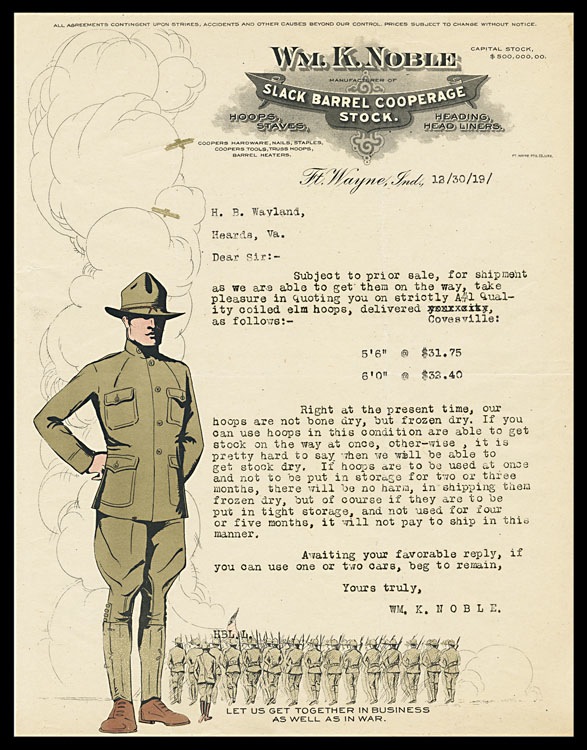 ALL AGREEMENTS CONTINGENT UPON STRIKES, ACCIDENTS AND OTHER CAUSES BEYOND OUR CONTROL. PRICES SUBJECT TO CHANGE WITHOUT NOTICE.
WM. K. NOBLE
CAPITAL STOCK,
$500,000.00.
MANUFACTURER OF
SLACK BARREL COOPERAGE
STOCK.
HOOPS,
STAVES,
HEADING,
HEAD LINERS.
COOPERS HARDWARE, NAILS, STAPLES,
COOPERS TOOLS, TRUSS HOOPS,
BARREL HEATERS.
Ft. Wayne, Ind., 12/30/19/
H. B. Wayland,
Heards, Va.
Dear Sir:-
Subject to prior sale, for shipment
as we are able to get them on the way, take
pleasure in quoting you on strictly A#1 Qual-
ity coiled elm hoops, delivered
as follows:- Covesville:
5'6" @ $31.75
6'0" @ $32.40
Right at the present time, our
hoops are not bone dry, but frozen dry. If you
can use hoops in this condition are able to get
stock on the way at once, other-wise , it is
pretty hard to say when we will be able to
get stock dry. If hoops are to be used at once
and not to be put in storage for two or three
months, there will be no harm, in shipping them
frozen dry, but of course if they are to be
put in tight storage, and not used for four
or five months, it will not pay to ship in this
manner.
Awaiting your favorable reply, if
you can use one or two cars, beg to remain,
Yours truly,
WM. K. N O B L E.
LET US GET TOGETHER IN BUSINESS
AS WELL AS IN WAR.